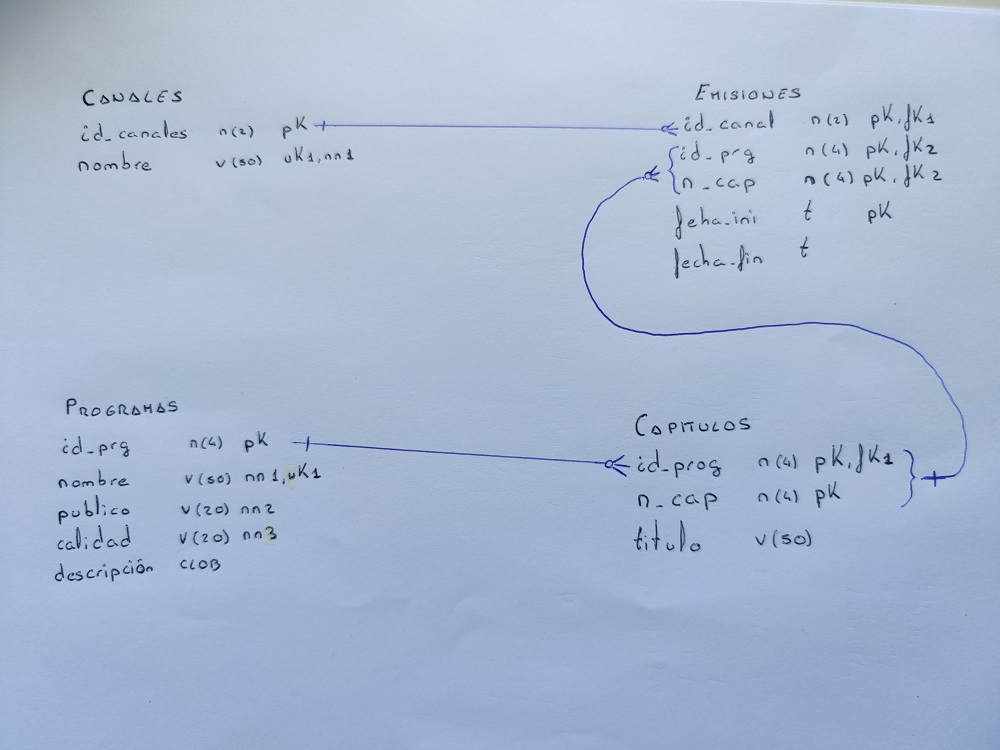 CANALES
id_canales n(2) pk
nombre v(50) uk1,nn1
EMISIONES
id_canal n(2) pk,fk1
id_prg n(4) pk,fk2
n_cap n(4) pk,fk2
feha_ini t pk
fecha_fin t
PROGRAMAS
id_prg n(4) pk
nombre v(50) nn1,uk1
publico v(20) nn2
calidad v(20) nn3
descripción CLOB
CAPITULOS
id_prog n(4) pk,fk1
n_cap n(4) pk
titulo v(50)